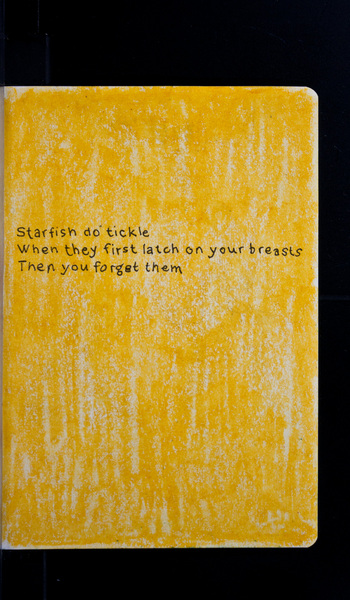 Starfish do tickle
When they first latch on your breasts
Then you forget them